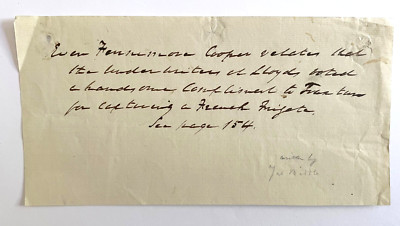 Even Fennimore Cooper relates that
the Underwriters at Lloyds voted
a handsome compliment to Truxtun
for capturing a French Frigate.
See page 154.